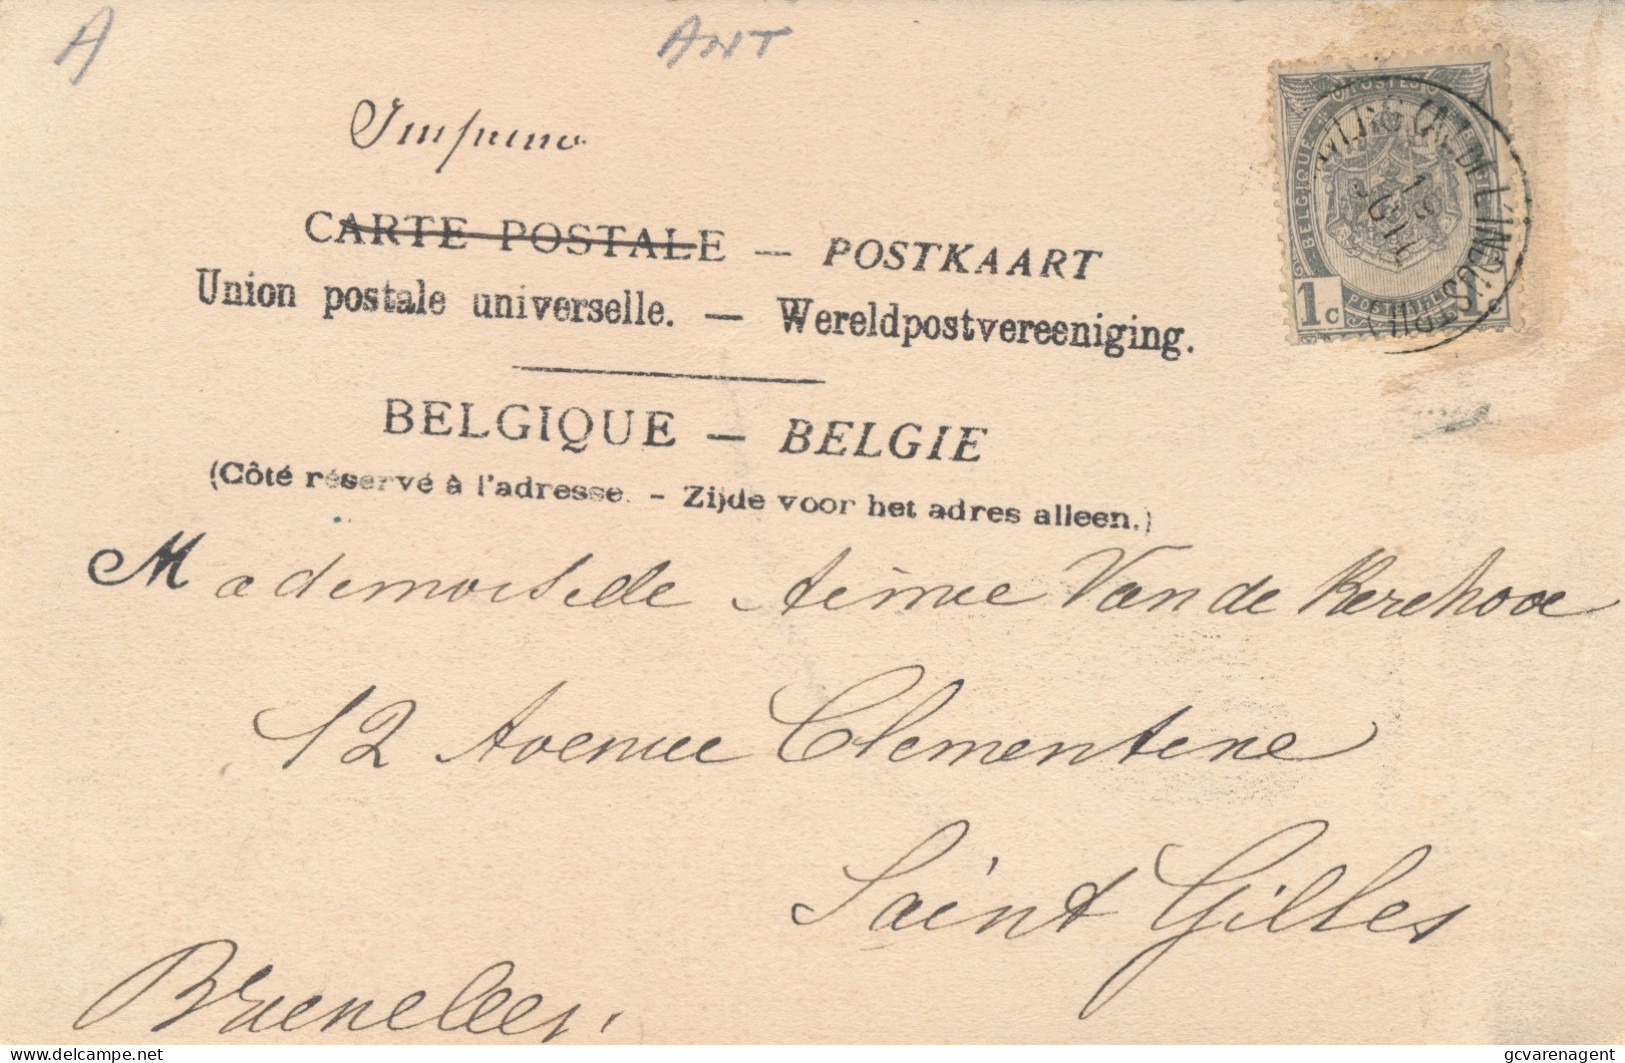 A
ANT
Imprimé
CARTE POSTALE — POSTKAART
Union postale universelle. — Wereldpostvereeniging.
BELGIQUE — BELGIE
(Côté réservé à l'adresse. - Zijde voor het adres alleen.)
POSTES
BELGIQUE
1c
(AV. DE L'INDUSTRIE)
Mademoiselle Aimée Van de Kerchove
12 Avenue Clementine
Saint Gilles
Bruxelles.
gcvarenagent
delcampe.net